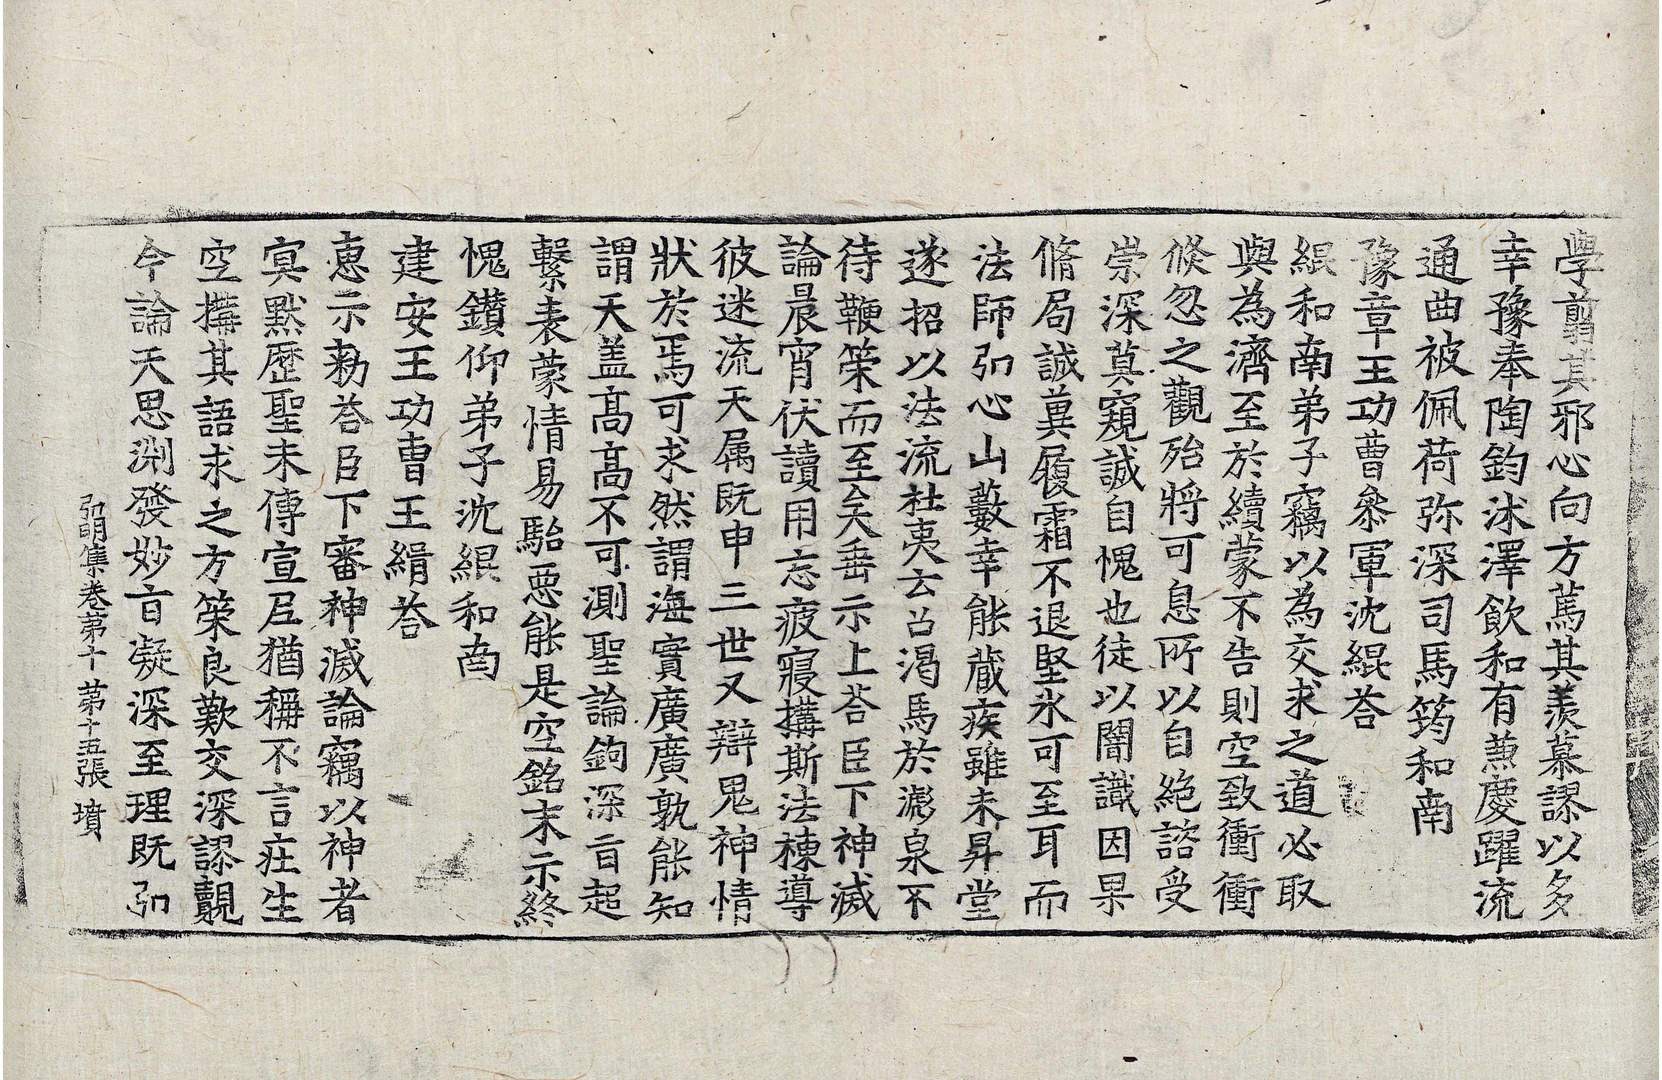 學翦其邪心向方篤其羡慕謬以多
幸豫奉陶鈞沐澤飲和有兼慶躍流
通曲被佩荷弥深司馬筠和南
豫章王功曹叅軍沈緄荅
緄和南弟子竊以為交求之道必取
與為濟至於續蒙不告則空致衝衝
倐忽之觀殆將可息所以自絶諮受
崇深莫窺誠自愧也徒以闇識因果
脩局誠兾履霜不退堅氷可至耳而
法師弘心山藪幸能藏疾雖未昇堂
遂招以法流杜夷云召渴馬於澎泉不
待鞭䇿而至矣垂示上荅臣下神滅
論晨宵伏讀用忘疲寢搆斯法棟導
彼迷流天属既申三世又辯鬼神情
狀於焉可求然謂海實廣廣孰能知
謂天盖髙髙不可測聖論鉤深旨起
繫表蒙情易駘惡能是空銘末示終
愧鑚仰弟子沈緄和南
建安王功曹王緝荅
惠示勑荅臣下審神滅論竊以神者
寘黙歴聖未傳宣尼猶稱不言在生
空搆其語求之方䇿良歎交深謬覿
今論天思渕發妙旨凝深至理既弘
弘明集卷苐十 苐十五張 墳